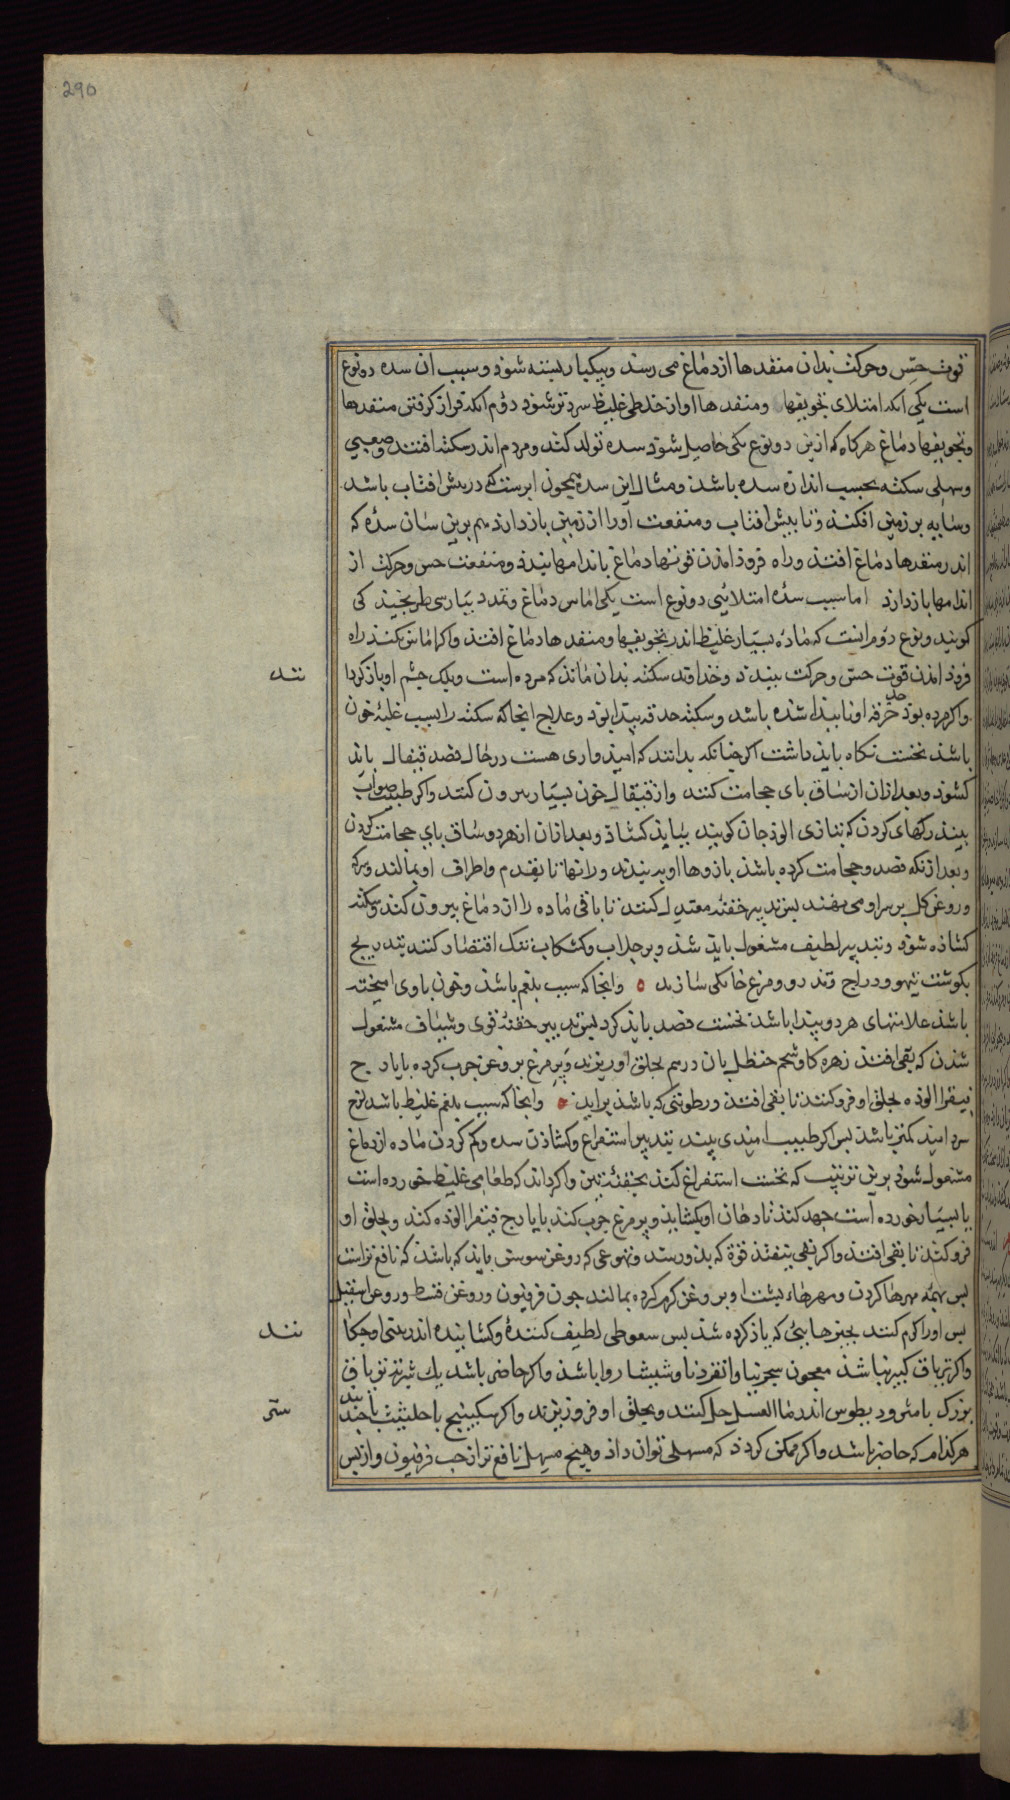 290
قوت حس و حرکت بدان منفذها از دماغ می رسد و بیکبار بسته شود و سبب ان سده دو نوع
است یکی انکه امتلای تجویفها و منفذها او از خلطی غلیظ سرد تر شود دوم انکه فراز کرفتن منفذها
و تجویفها دماغ هرکاه که ازین دو نوع یکی حاصل شود سده تولد کند و مردم اندر سکته افتند و صعبی
و سهلی سکته بحسب اندازه سده باشد و مثال این سده همچون ابریست که در پیش افتاب باشد
و سایه بر زمین افکند و تابش افتاب و منفعت او را از زمین باز دارد هم برین سان سده که
اندر منفذها دماغ افتد و راه فروذ امدن قوتها دماغ باندامها ببندد و منفعت حس و حرکت از
اندامها باز دارد اما سبب سده امتلائی دو نوع است یکی اماس دماغ و تمدد بپارسی طرنجیذکی
کویند و نوع دوم انست که ماده بسیار غلیظ اندر تجویفها و منفذها دماغ افتد و اکر اماس کند راه
فروذ امدن قوت حس و حرکت ببندد و خداوند سکته بدان ماند که مرده است و پلک چشم او باز کردا
شد
و اکر مرده بوذ حدقه او ناپیدا شده باشد و سکته حدقه پیدا بوذ و علاج انجا که سکته را سبب غلبه خون
باشد نخست نکاه باید داشت اکر چنانکه بدانند که امیدواری هست در حال فصد قیفال باید
کشوذ و بعد ازان از ساق پای حجامت کنند و از قیفال خون بسیار بیرون کنند و اکر طبیب صواب
بیند رکهای کردن که بتازی الوذجان کویند بباید کشاذ و بعد ازان از هر دو ساق پای حجامت کردن
و بعد ازنکه فصد و حجامت کرده باشد بازوها او ببندند و رانها تا بقدم و اطراف او بمالند و سرکه
و روغن کل بر سر او می نهند پس تدبیر حقنه معتدل کنند تا باقی ماده را از دماغ بیرون کند و سکته
کشاذه شود و بتدبیر لطیف مشغول باید شد و بر جلاب و کشکاب تنک اقتصار کنند بتدریج
بکوشت تیهو و دراج و تذرو و مرغ خانکی سازند ه و انجا که سبب بلغم باشد و خون با وی امیخته
باشد علامتهای هر دو پیدا باشد نخست فصد باید کرد پس تدبیر حقنه قوی و شیاف مشغول
شدن که بقی افتد زهره کاو شحم حنظل بان درهم بحلق او ریزند و پر مرغ بروغن چرب کرده بایارج
فیقرا الوذه بحلق او فرو کنند تا بقی افتد و رطوبتی که باشد براید ه و انجا که سبب بلغم غلیظ باشد لزج
سرد امید کمتر باشد پس اکر طبیب امیدی بیند بتدبیر استفراغ و کشاذن سده و کم کردن ماده از دماغ
مشغول شود برین ترتیب که نخست استفراغ کند بحقنه تیز و اکر داند که طعامی غلیظ خورده است
یا بسیار خورده است جهد کنند تا دهان او بکشایذ و پر مرغ چرب کند بایارج فیقرا الوذه کند و بحلق او
فرو کند تا بقی افتد و اکر بقی نیفتد قوة که بدو رسد و تهوعی که روغن سوسن باید که باشد که نافع تراست
پس بهمه مهرها کردن و مهرهاء پشت او بروغن کرم کرده بمالند چون فرفیون و روغن قسط و روغن اسقیل
پس او را کرم کنند بچیزهایی که یاذ کرده شد پس سعوطی لطیف کننده و کشاینده اندر بینی او چکا
نند
و اکر تریاق کبیر نباشد معجون سجزنیا و انقردیا و شیشا روا باشد و اکر حاضر باشد یک شربت تریاق
بزرک با مثرودیطوس اندر ما العسل حل کنند و بحلق او فرو ریزند و اکر سکبینج با حلتیث با جند
بید
ستر
هر کذام که حاضر باشد و اکر ممکن کردد که مسهلی توان داذ و هیچ مسهل نافع تر از حب فرفیون و از پس